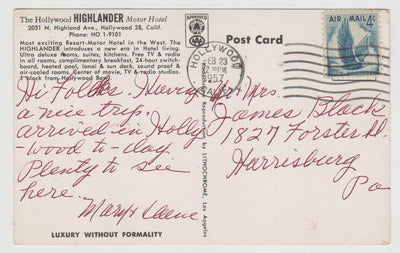 The Hollywood HIGHLANDER Motor Hotel
2051 N. Highland Ave., Hollywood 28, Calif.
Phone: HO 1-9101
Most exciting Resort-Motor Hotel in the West. The
HIGHLANDER introduces a new era in Hotel living.
Ultra deluxe rooms, suites, kitchens, Free TV & radio
in all rooms, complimentary breakfast, 24-hour switch-
board, heated pool, lanai & sun deck, sound proof &
air-cooled rooms. Center of movie, TV & radio studios.
block from Hollywood Bowl
Hi Folks. Having
a nice trip,
arrived in Holly
-wood to-day
Plenty to see
here.
Mary &
LUXURY WITHOUT FORMALITY
APPROVED
AAA
Reproduction by LITHOCHROME, Los Angeles
Post Card
HOLLYWOOD
FEB 23
PM
1957
CALIF.
AIR MAIL 4¢
Mrs.
James Black
1827 Forster St.
Harrisburg
Pa